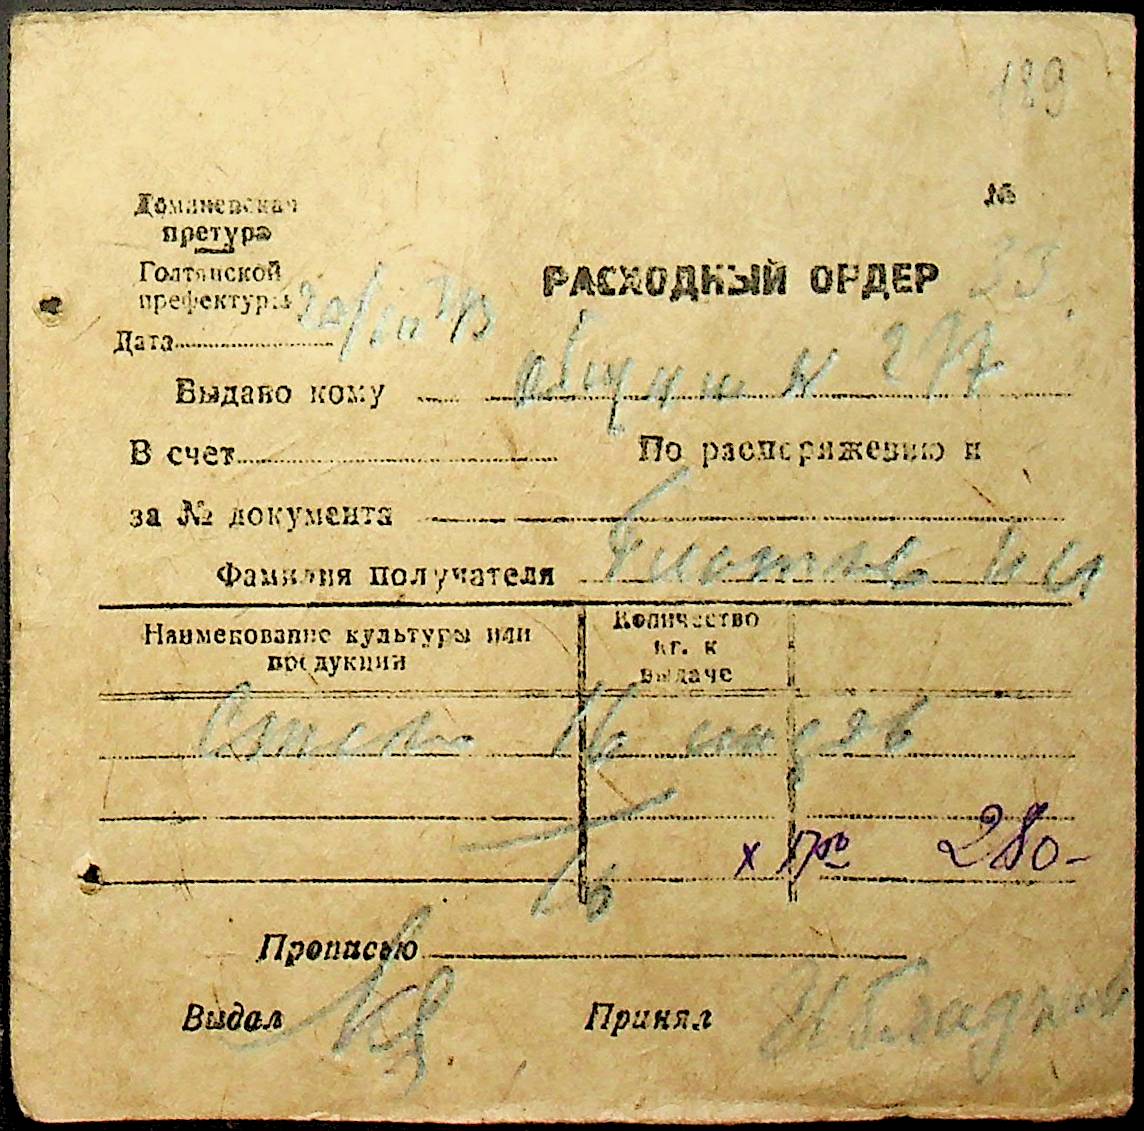 189
Доманевская
претура
Голтянской
префектуры
№
33
РАСХОДНЫЙ ОРДЕР
Дата
Выдано кому общине № 277
В счет По распоряжению и
за № документа
Фамилия получателя
Наименование культуры или продукции
Количество кг. к выдаче
16
x 17 50 280-
16
Прописью
Выдал
Принял